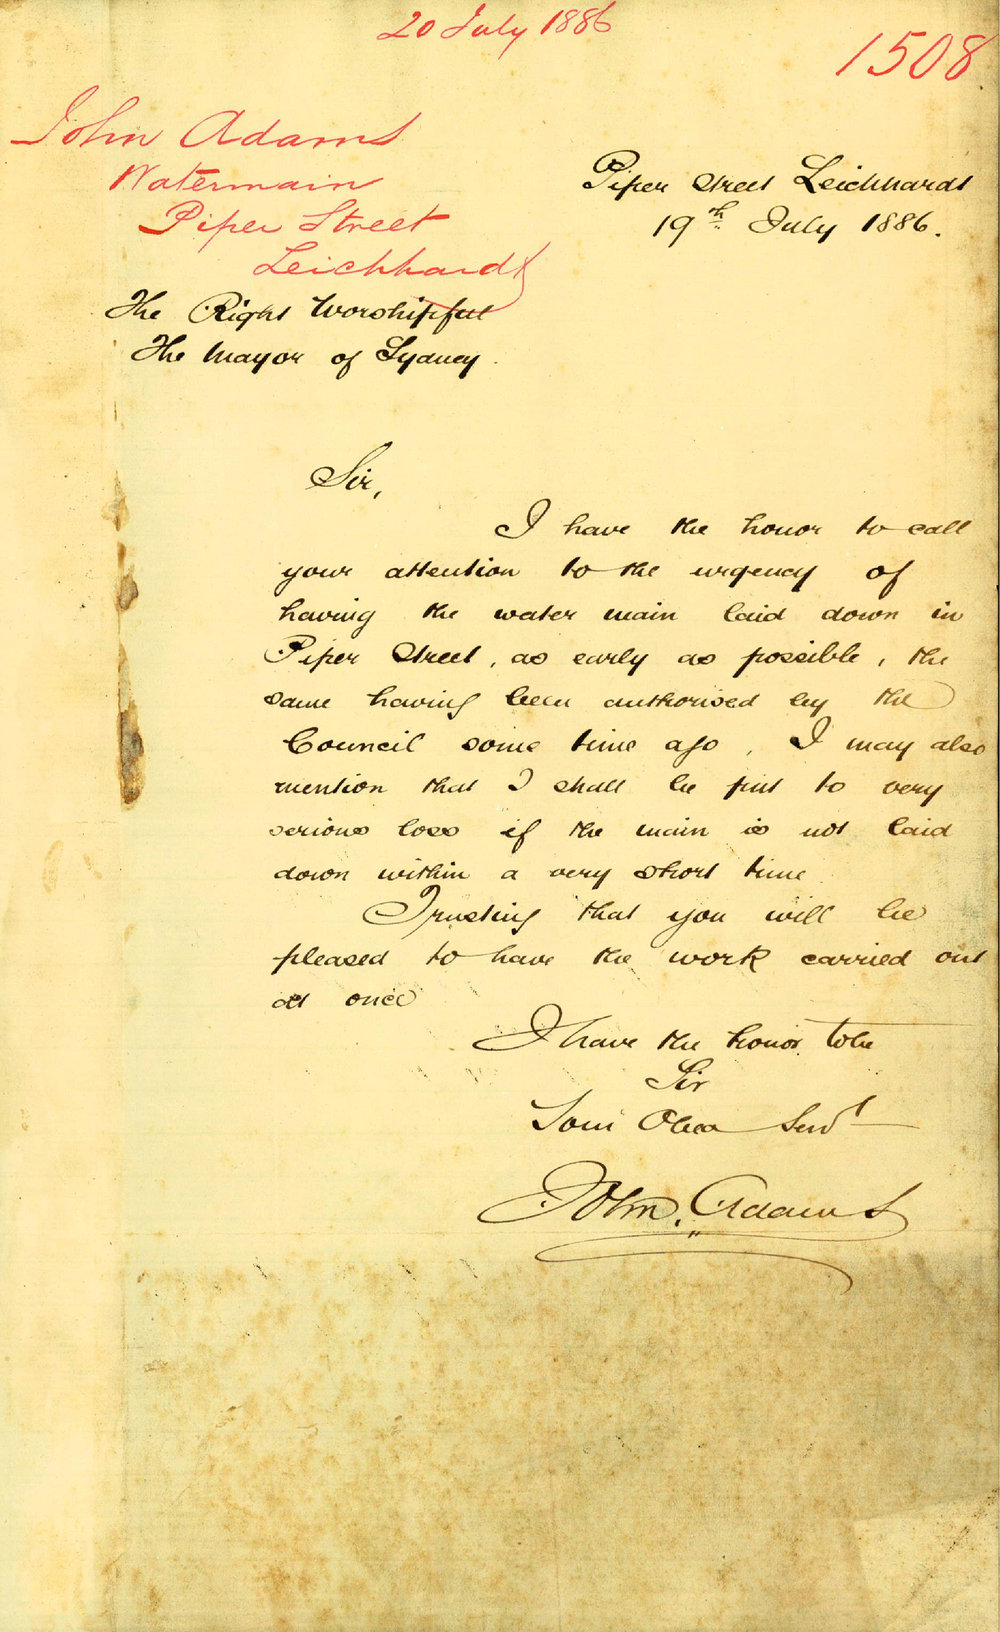 20 July 1886
1508
John Adams
Watermain
Piper Street
Leichhardt
Piper Street Leichhardt
19th July 1886.
The Right Worshipful
The Mayor of Sydney.
Sir,
I have the honor to call
your attention to the urgency of
having the water main laid down in
Piper Street, as early as possible, the
same having been authorised by the
Council some time ago, I may also
mention that I shall be put to very
serious loss if the main is not laid
down within a very short time
Trusting that you will be
pleased to have the work carried out
at once
I have the honor to be
Sir
Your Obed Servt
John Adams